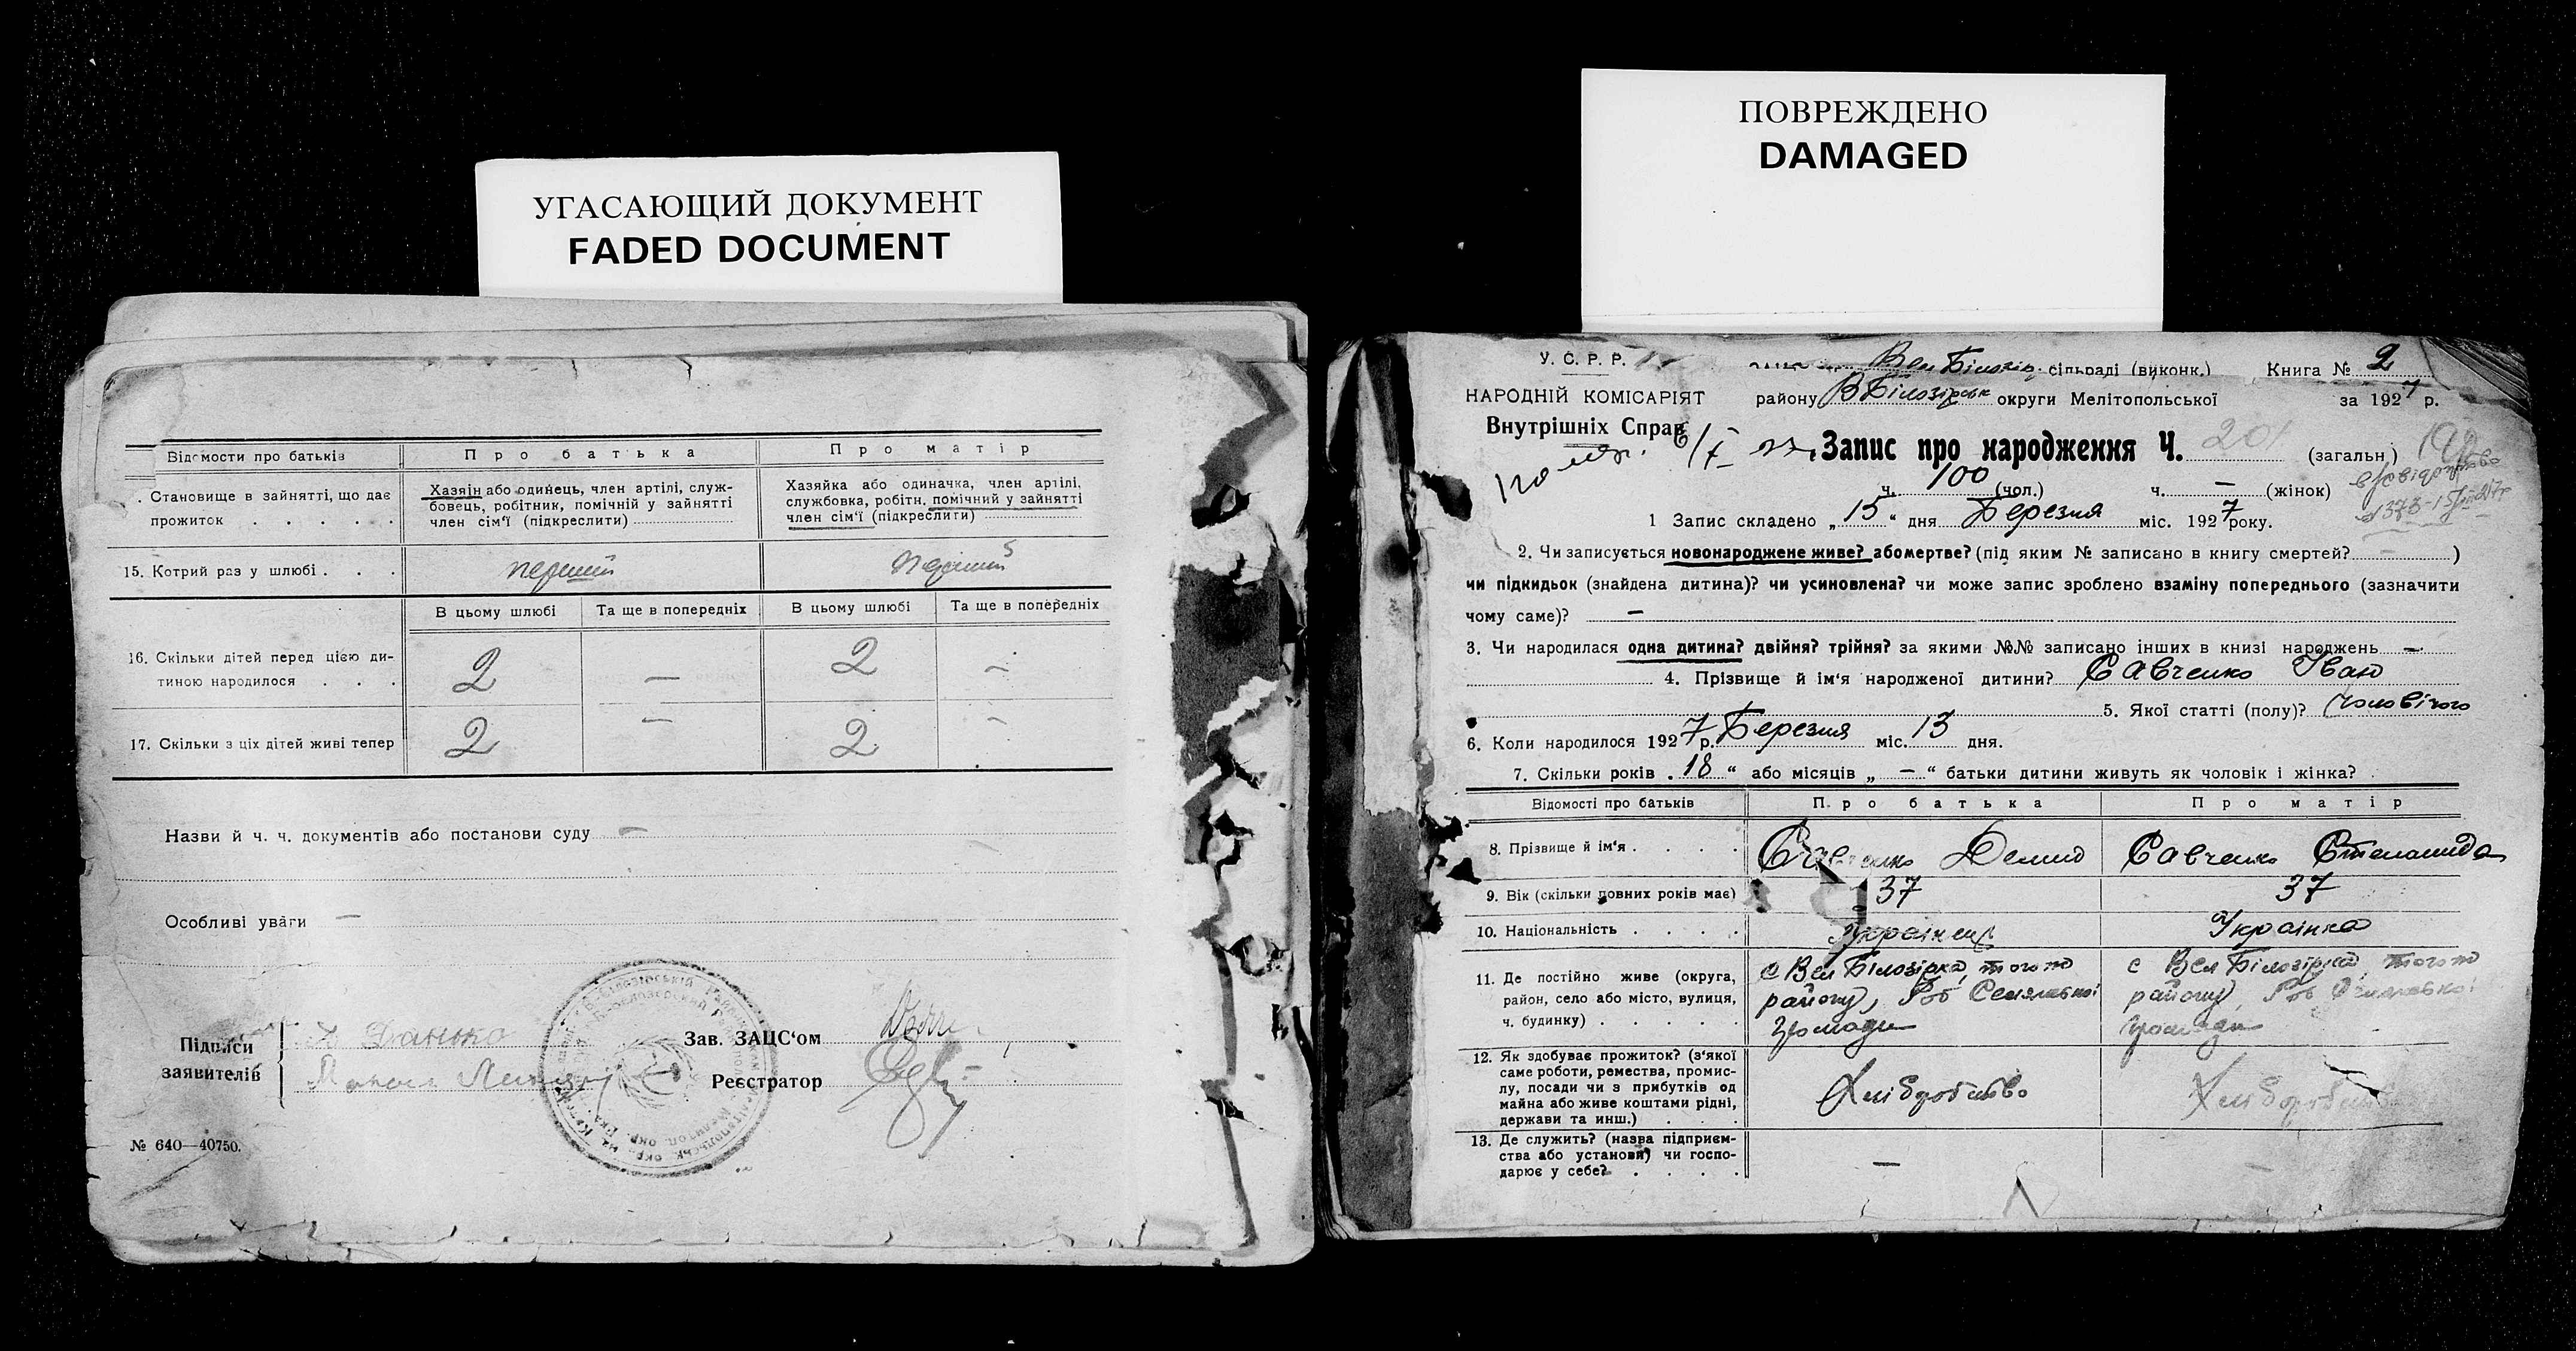 УГАСАЮЩИЙ ДОКУМЕНТ
FADED DOCUMENT
Відомости про батьків
Про батька
Про матір
Становище в зайнятті, що дає
прожиток
Хазяїн або одинець, член артілі, служ-
бовець, робітник, помічній у зайнятті
член сім'ї (підкреслити)
Хазяйка або одиначка, член артілі,
службовка, робітн, помічний у зайнятті
член сім'ї (підкреслити)
15. Котрий раз у шлюбі
перший
перший
В цьому шлюбі
Та ще в попередніх
В цьому шлюбі
Та ще в попередніх
16. Скільки дітей перед цією ди-
тиною народилося
2 — 2 —
17. Скільки з ціх дітей живі тепер
2 — 2 —
Назви й ч. ч. документів або постанови суду —
Особливі уваги —
Підписи
заявителів
Зав. ЗАЦС'ом
Реєстратор
№ 640—40750.
ПОВРЕЖДЕНО
DAMAGED
У. С. Р. Р.
НАРОДНІЙ КОМІСАРІЯТ
Внутрішніх Справ
Вел Білозір. сільраді (виконк.)
Книга № 2
району В Білозірськ округи Мелітопольської
за 1927 р.
Запис про народження Ч. 201 (загальн)
ч. 100 (чол.) ч. — (жінок)
1 Запис складено „15“ дня Березня міс. 1927 року.
2. Чи записується новонароджене живе? або мертве? (під яким № записано в книгу смертей? — )
чи підкидьок (знайдена дитина)? чи усиновлена? чи може запис зроблено взаміну попереднього (зазначити
чому саме)? —
3. Чи народилася одна дитина? двійня? трійня? за якими №№ записано інших в книзі народжень —
4. Прізвище й ім'я народженої дитини? Савченко Іван
5. Якої статті (полу)? Чоловічого
6. Коли народилося 1927 р. Березня міс. 13 дня.
7. Скільки років „18“ або місяців „—“ батьки дитини живуть як чоловік і жінка?
Відомості про батьків
Про батька
Про матір
8. Прізвище й ім'я
Савченко Демид
Савченко Степанида
9. Вік (скільки повних років має)
37
37
10. Національність
Українець
Українка
11. Де постійно живе (округа,
район, село або місто, вулиця,
ч. будинку)
с Вел Білозірка, того ж
району,
громади
с Вел Білозірка, того ж
району,
громади
12. Як здобуває прожиток? (з'якої
саме роботи, ремества, промис-
лу, посади чи з прибутків од
майна або живе коштами рідні,
держави та инш.)
Хліборобство
Хліборобство
13. Де служить? (назва підприєм-
ства або установи) чи госпо-
дарює у себе?
—
—